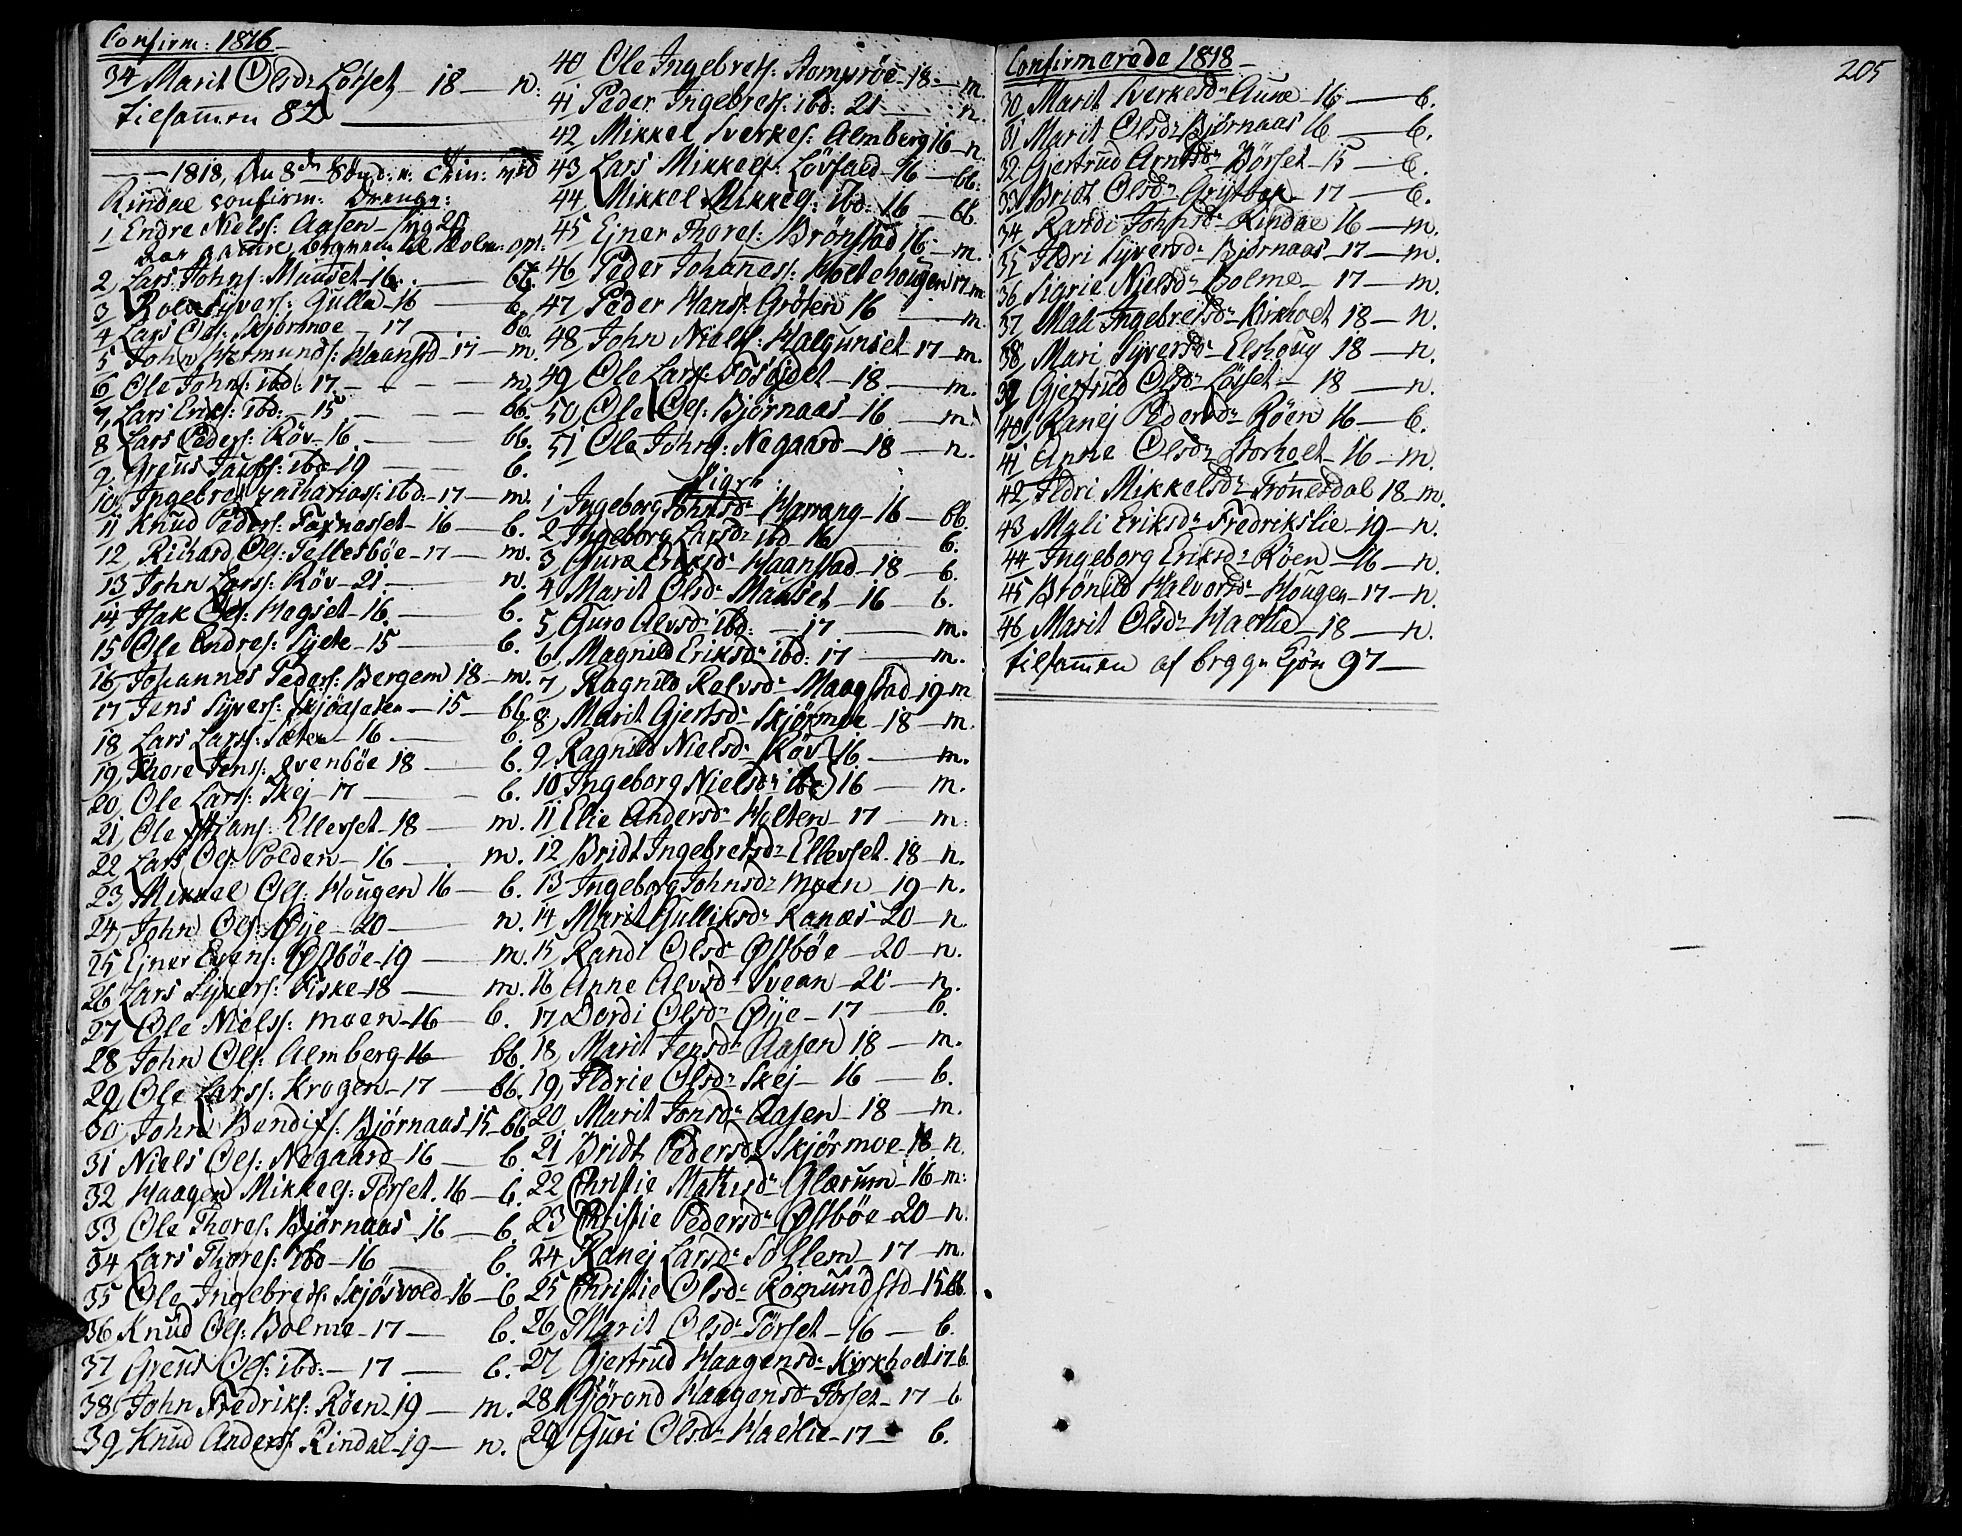 Confirm: 1816
34 Marit Olsd: Løfset 18 — n.
tilsamen 82
1818, Rindal confirm: Drenge:
1 Endre Niels: Aasen
2 Lars Johns: Mauset 16 — bb.
3 Rolv Syvers: Gulla 16 — b.
4 Lars Ols: Skjørmoe 17 — bb.
5 John Hermunds: Haanstd 17 — m.
6 Ole Johns: ibd: 17 — m.
7 Lars Eriks: ibd: 15 — bb.
8 Lars Peders: Røv 16 — bb.
9 Greus ibd 19 — b.
10 Ingebret Zacharias: ibd: 17 — m.
11 Knud Peders: 16 — b.
12 Richard Ols: Tellesbøe 17 — m.
13 John Larss: Røv 21 — n.
14 Isak Ols: Hagset 16 — b.
15 Ole Endres: 15 — b.
16 Johannes Peders: Bergem 18 — m.
17 Jens Syvers: 15 — bb.
18 Lars Larss: Sæter 16 — b.
19 Thore Jens: Evenbøe 18 — b.
20 Ole Larss: Skej 17 — b.
21 Ole Hans: Ellevset 18 — m.
22 Lars Ols: Polden 16 — m.
23 Mikkel Ols: Hougen 16 — b.
24 John Ols: Øye 20 — n.
25 Ejner Evens: Østbøe 19 — m.
26 Lars Syvers: Fiske 18 — m.
27 Ole Nielss: Moen 16 — b.
28 John Ols: Almberg 16 — bb.
29 Ole Larss: Krogen 17 — bb.
30 John Bendixs: Bjørnaas 15 — bb.
31 Niels Ols: Negaard 16 — b.
32 Haagen Mikkels: Tørset 16 — b.
33 Ole Thores: Bjørnaas 16 — b.
34 Lars Thores: ibd 16 — b.
35 Ole Ingebrets: Skjøsvold 16 — b
36 Knud Ols: Bolme 17 — b.
37 Greus Ols: ibd: 17 — b.
38 John Fredriks: Røen 19 — m.
39 Knud Anders: Rindal 19 — n.
40 Ole Ingebrets: Stomprøe 18 — m.
41 Peder Ingebrets: ibd: 21 — n.
42 Mikkel Sverkes: Almberg 16 — n.
43 Lars Mikkels: Løvfald 16 — bb.
44 Mikkel Mikkels: ibd: 16 — bb.
45 Ejner Thores: Brønstad 16 — m.
46 Peder Johanes: Holtehougen 17 m
47 Peder Hans: Grøten 16 — m.
48 John Niels: Halgunset 17 — m.
49 Ole Lars: 18 — m.
50 Ole Ols: Bjørnaas 16 — m.
51 Ole Johns: Negaard 18 — n.
Piger:
1 Ingeborg Johnsd: Harrang 16 — bb.
2 Ingeborg Larsd: ibd 16 — b.
3 Guro Eriksd: Haanstad 18 — b.
4 Marit Olsd: Mauset 16 — b.
5 Guro Alvsd: ibd: 17 — m.
6 Magnild Eriksd: ibd: 17 — m.
7 Ragnild Rolvsd: Haagstad 19 m
8 Marit Gjertsd: Skjørmoe 18 — m.
9 Ragnild Nielsd: Røv 16 — m.
10 Ingeborg Nielsd: ibd 16 — m.
11 Elie Andersd: Holten 17 — m.
12 Bridt Ingebretsd: Ellevset 18 — n.
13 Ingeborg Johnsd: Moen 19 — n.
14 Marit Gulliksd: Ranæs 20 — n.
15 Randi Olsd Østbøe 20 — n.
16 Anne Alvsd: Svean 21 — n.
17 Dordi Olsd: Øye 17 — b.
18 Marit Jensd: Aasen 18 — m.
19 Ildrie Olsd: Skej 16 — b.
20 Marit Jonsd: Aasen 18 — m.
21 Bridt Pedersd: Skjørmoe 18 — n.
22 Christie Mathisd: Glærum 16 m:
23 Christie Pedersd: Østbøe 20 — n.
24 Ranej Larsd: Sollem 17 — m.
25 Christie Olsd: Romundstd 15 bb.
26 Marit Olsd: Tørset 16 — b.
27 Gjertrud Haagensd: Kirkholt 17 b.
28 Gjørond Haagensd: Tørset 17 b
29 Guri Olsd: Hælie 17 — b.
Confirmerede 1818
205
30 Marit Sverkesd: Aune 16 — b.
31 Marit Olsd: Bjørnaas 16 — b.
32 Gjertrud Arntsd: Børset 15 — b.
33 Bridt Olsd: Grytbak 17 — b.
34 Randi Johnsd: Rindal 16 — m.
35 Ildri Syversd: Bjørnaas 17 — m.
36 Sigrie Nielsd: Bolme 17 — m.
37 Mali Ingebretsd: Kirkholt 18 — n.
38 Mari Syversd: Elshoug 18 — n.
39 Gjertrud Olsd: Løfset 18 — n.
40 Ranej Pedersd: Røen 16 — b.
41 Anne Olsd: Storholt 16 — m.
42 Ildri Mikkelsd: Trønesdal 18 — m.
43 Mali Eriksd: Fredrikslie 19 — n.
44 Ingeborg Eriksd: Røen 16 — n.
45 Brønild Halvorsd: Hougen 17 — n.
46 Marit Olsd: Hælie 18 — n.
tilsamen af begge Kjøn 97